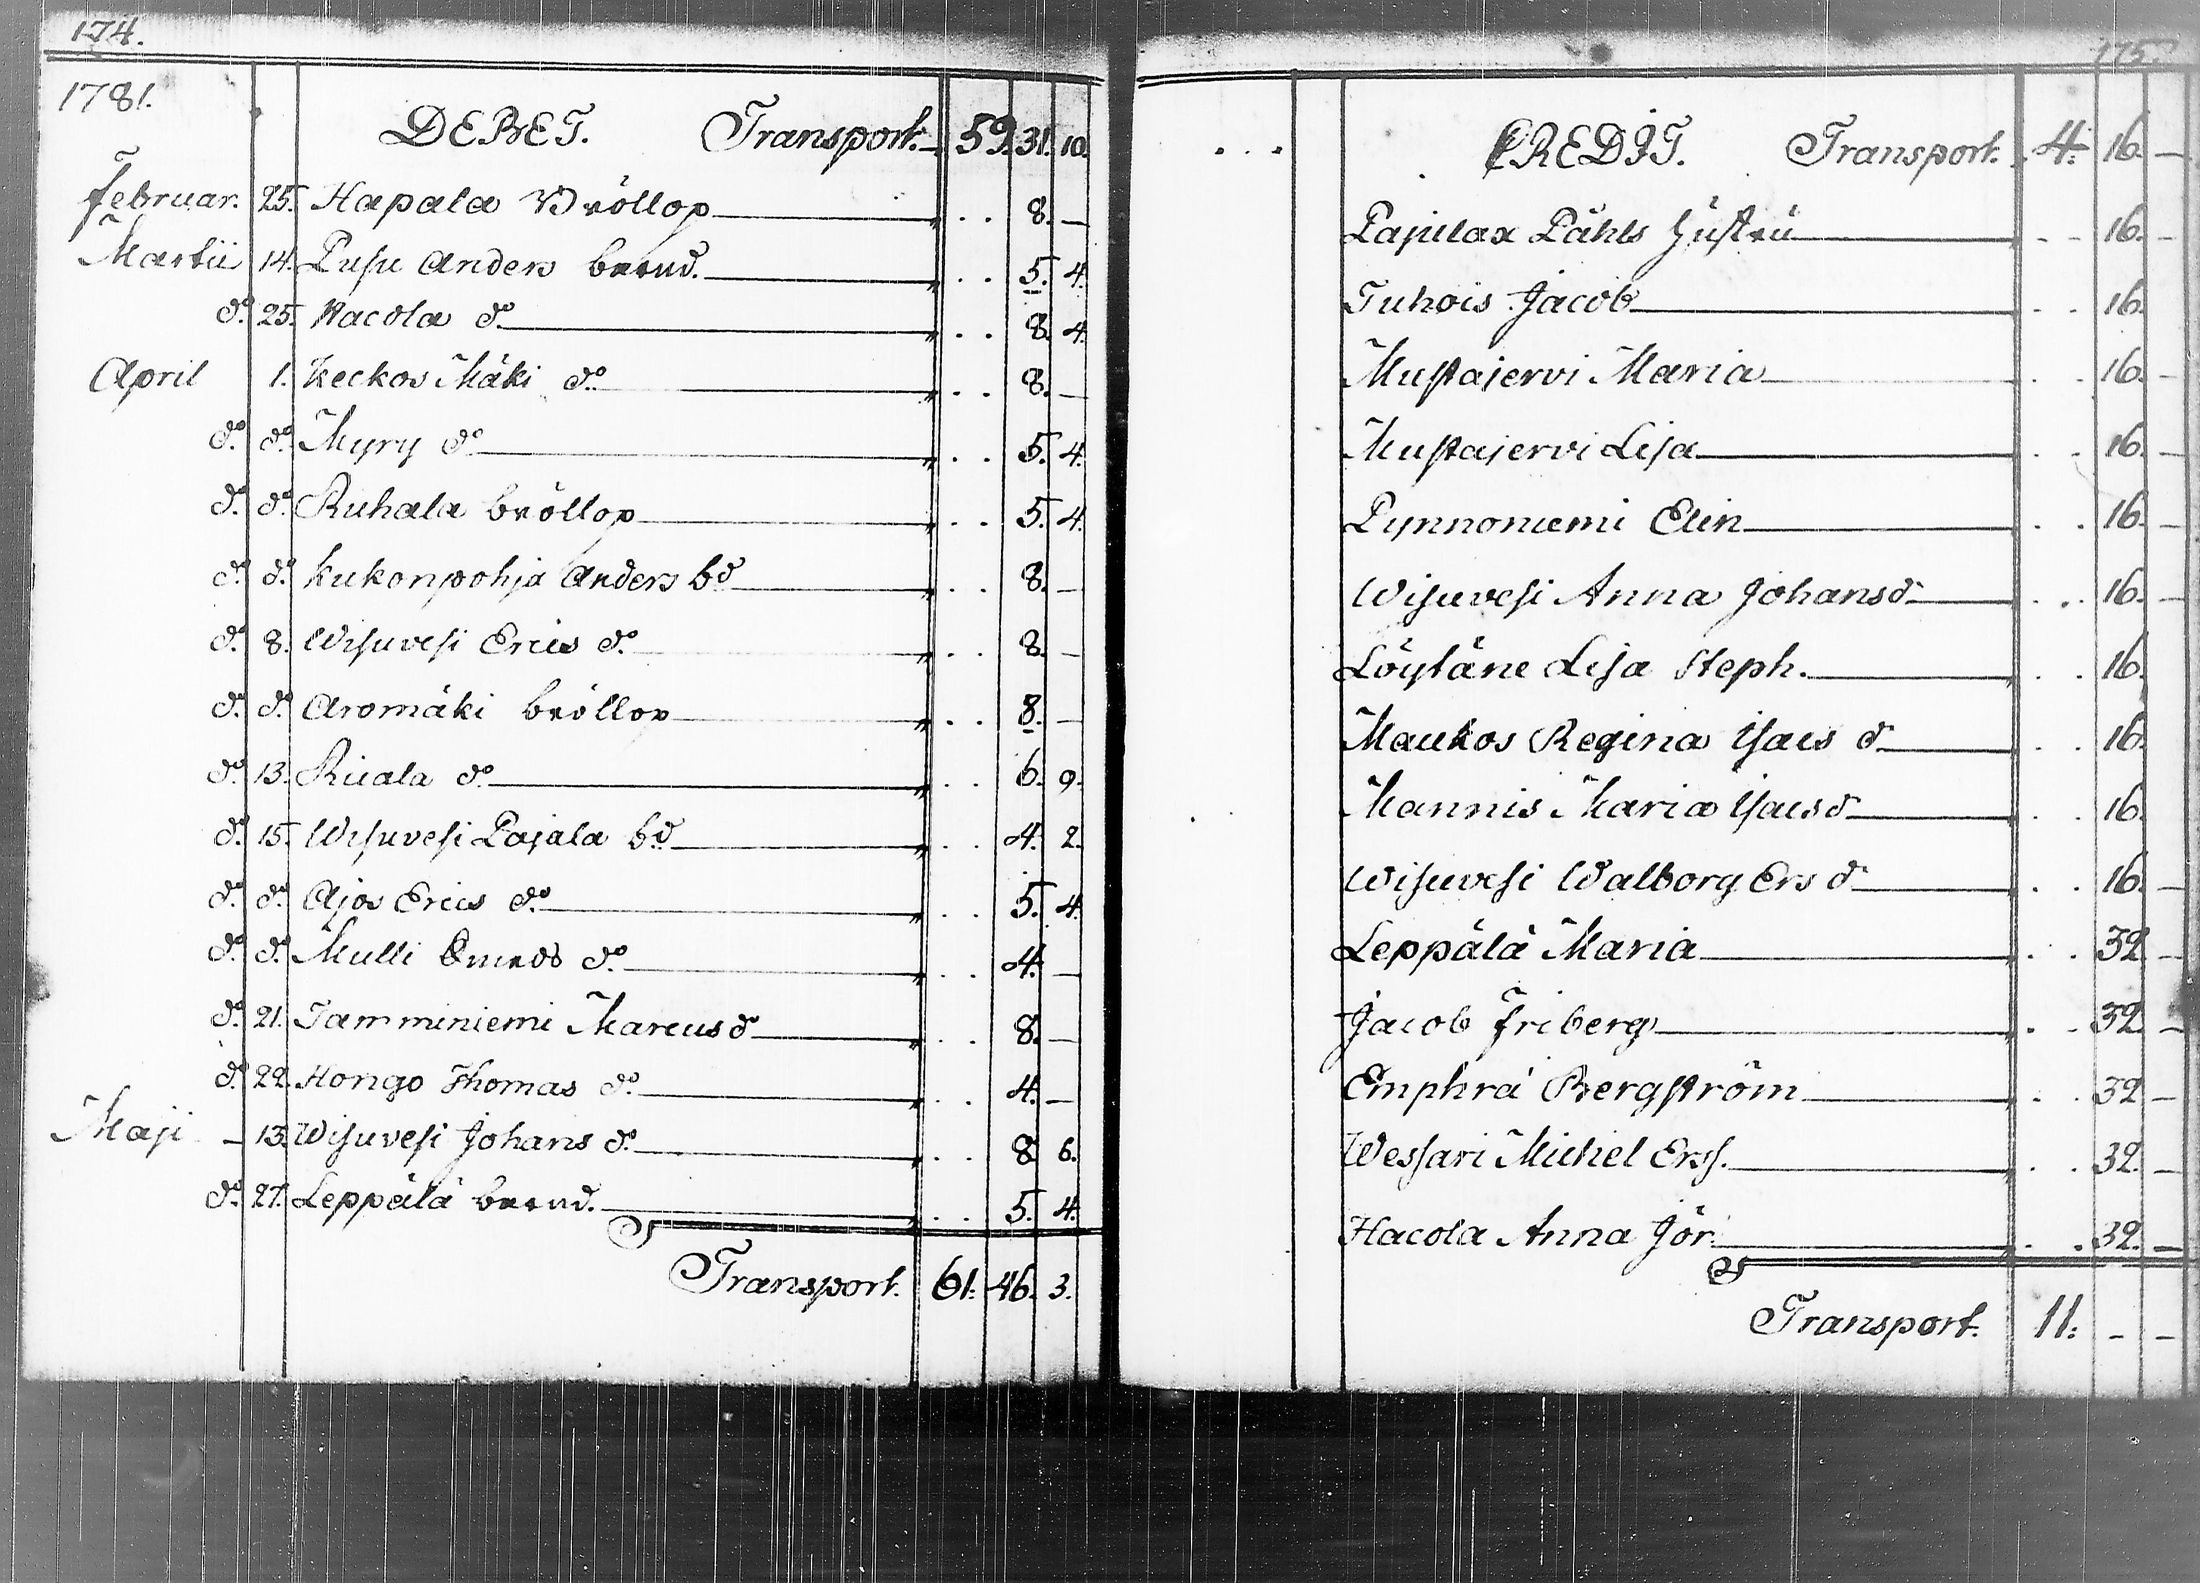 174.
1781. DEBET. Transport. 59. 31. 10.
Februar. 25. Hapala Bröllop „ . . 8. —
Martii 14. Pusu Anders barnd. „ . . 5. 4.
do. 25. Racola do. „ . . 8. 4.
April 1. Keckos Mäki do. „ . . 8. —
do. do. Myry do. „ . . 5. 4.
do. do. Ruhala bröllop „ . . 5. 4.
do. do. Kukonpohja Anders bd „ . . 8. —
do. 8. Wisuvesi Erics do. „ . . 8. —
do. do. Aromäki bröllop „ . . 8. —
do. 13. Riiala do. „ . . 6. 9.
do. 15. Wisuvesi Pajala bd. „ . . 4. 2.
do. do. Ajos Erics do. „ . . 5. 4.
do. do. Mulli do. „ . . 4. —
do. 21. Tamminiemi Marcus d „ . . 8. —
do. 22. Hongo Thomas do. „ . . 4. —
Maji — 13. Wisuvesi Johans do. „ . . 8 6.
do. 27. Leppälä barnd. „ . . 5. 4.
Transport. 61. 46. 3.
175.
. . . CREDIT. Transport. . 4. 16. —
Pajulax Påhls Hustru „ - - 16. -
Tuhois Jacob „ . . 16. —
Mustajervi Maria „ . . 16. —
Mustajervi Lisa „ . . 16. —
Pynnoniemi Elin „ . . 16. —
Wisuvesi Anna Johansd. „ . . 16. —
Löytäne Lisa Steph. „ . . 16.
Maukos Regina Isacs d. „ . . 16.
Mannis Maria Isacsd. „ . . 16.
Wisuvesi Walborg Ers d. „ . . 16. —
Leppälä Maria „ . . 32 —
Jacob Friberg „ . . 32 —
Emphrå Bergström „ . . 32 —
Wessari Michel Erss. „ . . 32. —
Hacola Anna Jör. „ . . 32. —
Transport. 11. — —